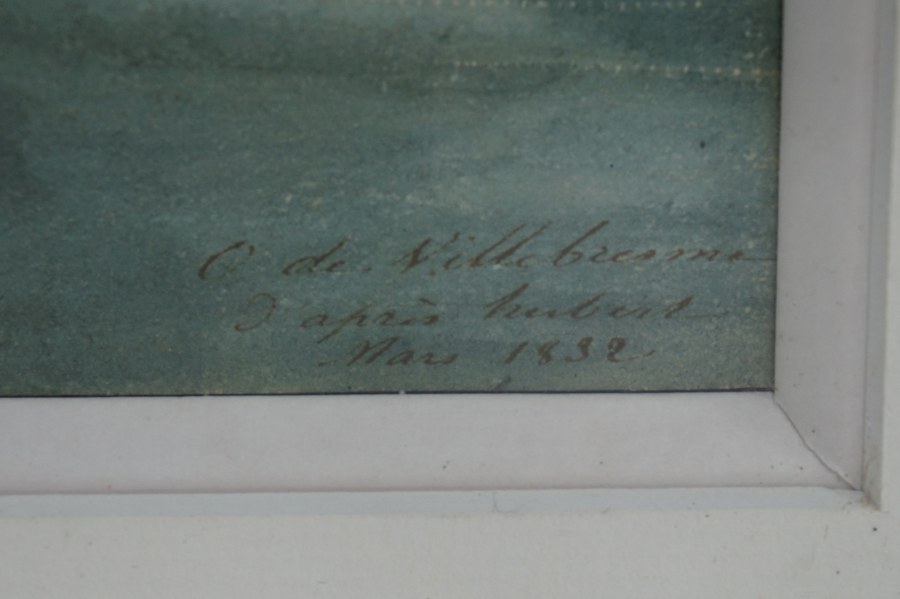 C de Villebresme
d'après hubert
Mars 1832